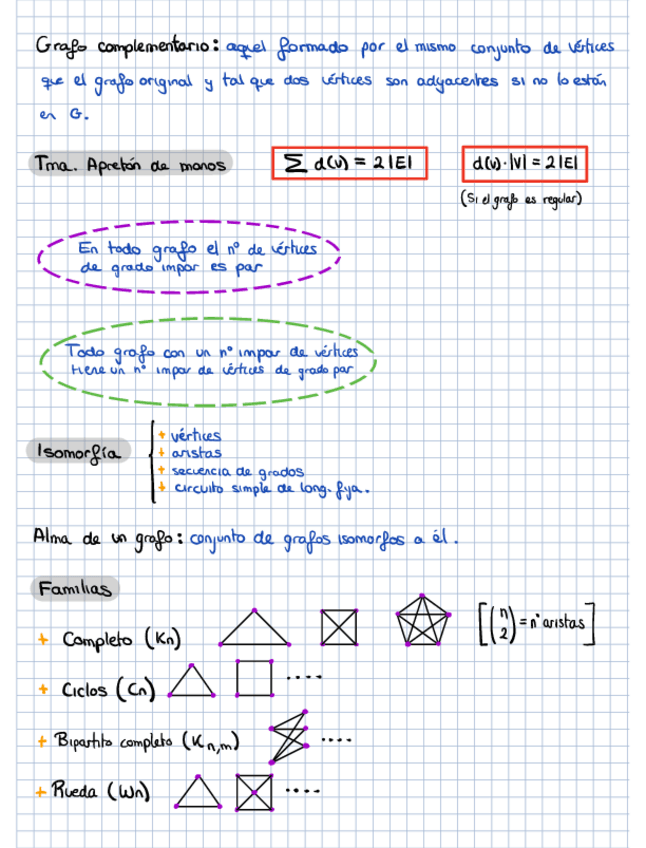 Grafo complementario: aquel formado por el mismo conjunto de vértices
que el grafo original y tal que dos vértices son adyacentes si no lo están
en G.
Tma. Apretón de manos
∑ d(v) = 2|E|
d(v)·|V| = 2|E|
(Si el grafo es regular)
En todo grafo el nº de vértices
de grado impar es par
Todo grafo con un nº impar de vértices
tiene un nº impar de vértices de grado par
Isomorfía
+ vértices
+ aristas
+ secuencia de grados
+ circuito simple de long. fija.
Alma de un grafo: conjunto de grafos isomorfos a él.
Familias
+ Completo (Kn)
[(n 2) = nº aristas]
+ Ciclos (Cn)
....
+ Bipartito completo (Kn,m)
....
+ Rueda (Wn)
....